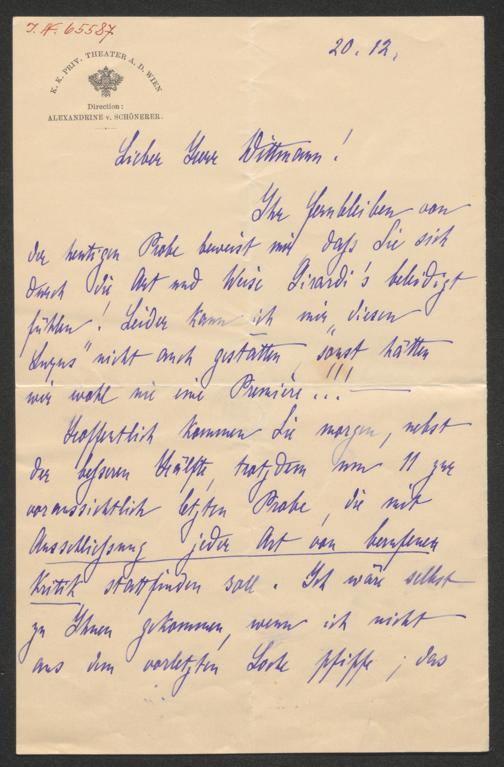 J. N. 65587
20. 12.
K. K. PRIV. THEATER A. D. WIEN
Direction:
ALEXANDRINE v. SCHÖNERER.
Lieber Herr Wittmann!
Ihr Fernbleiben von
der heutigen Probe beweist mir daß Sie sich
durch die Art und Weise Girardi's beleidigt
fühlen! Leider kann ich mir „diesen
Luxus" nicht auch gestatten, sonst hätten
wir wohl nie eine Première...!!!
Hoffentlich kommen Sie morgen, nebst
der besseren Hälfte, trotzdem um 11 zur
voraussichtlich letzten Probe, die mit
Ausschließung jeder Art von berufenen
Kritik stattfinden soll. Ich wäre selbst
zu Ihnen gekommen, wenn ich nicht
aus dem vorletzten Loche pfiffe; das